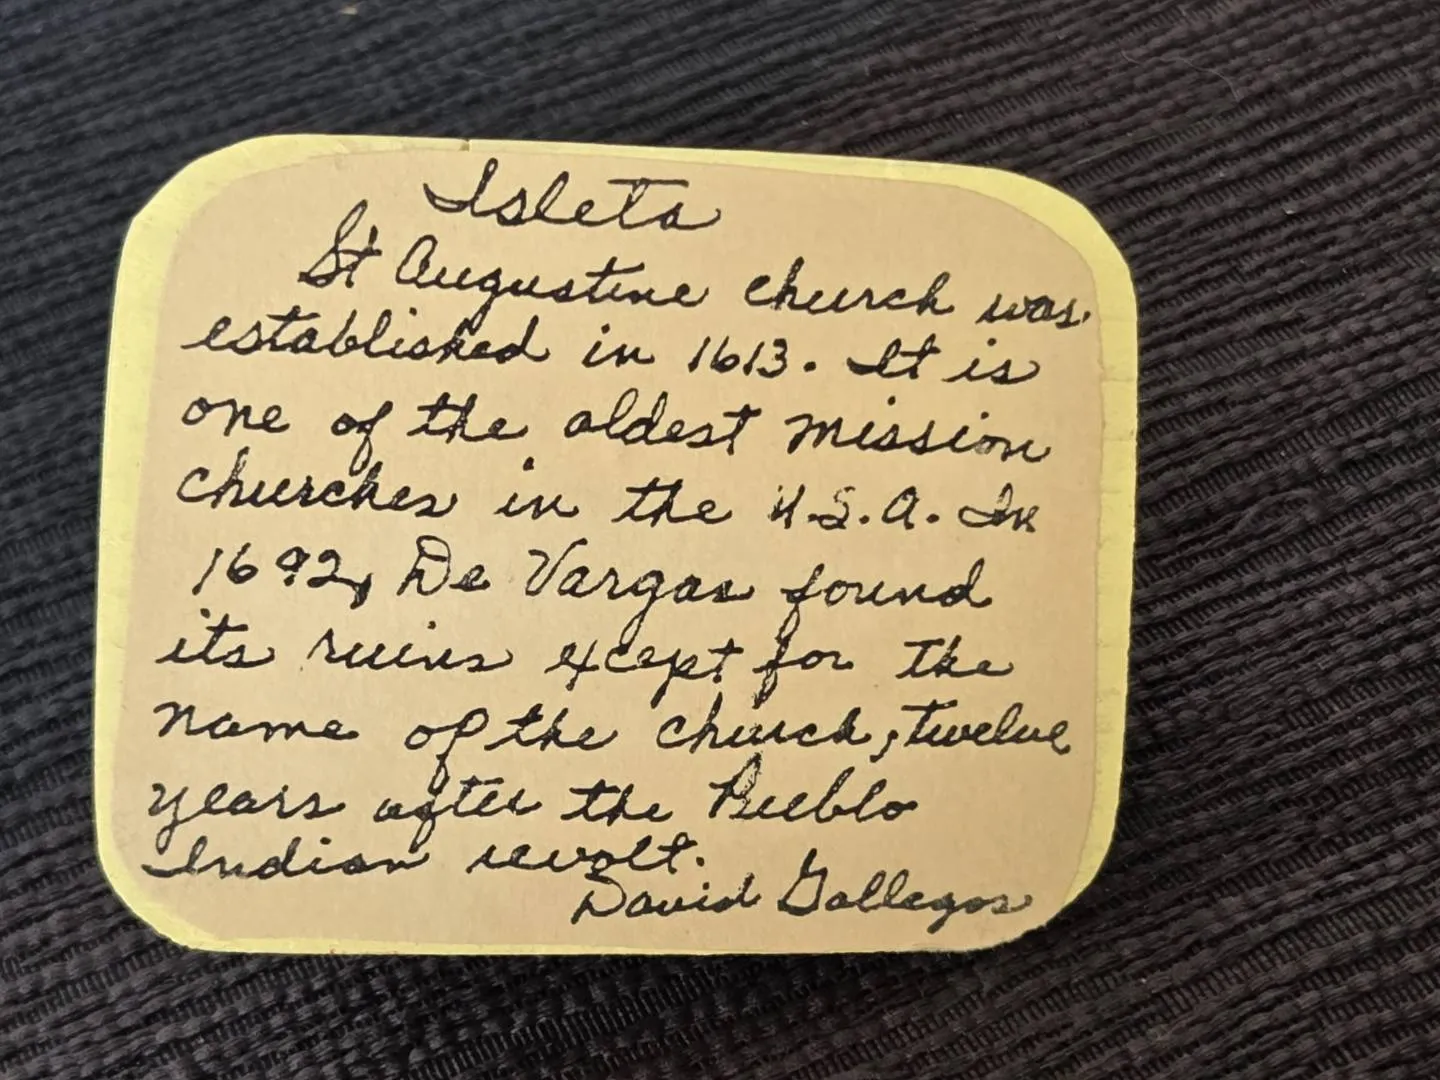 Isleta
St Augustine church was
established in 1613. It is
one of the oldest mission
churches in the U.S.A. In
1692, De Vargas found
its ruins except for the
name of the church, twelve
years after the Pueblo
Indian revolt.
David Gallegos